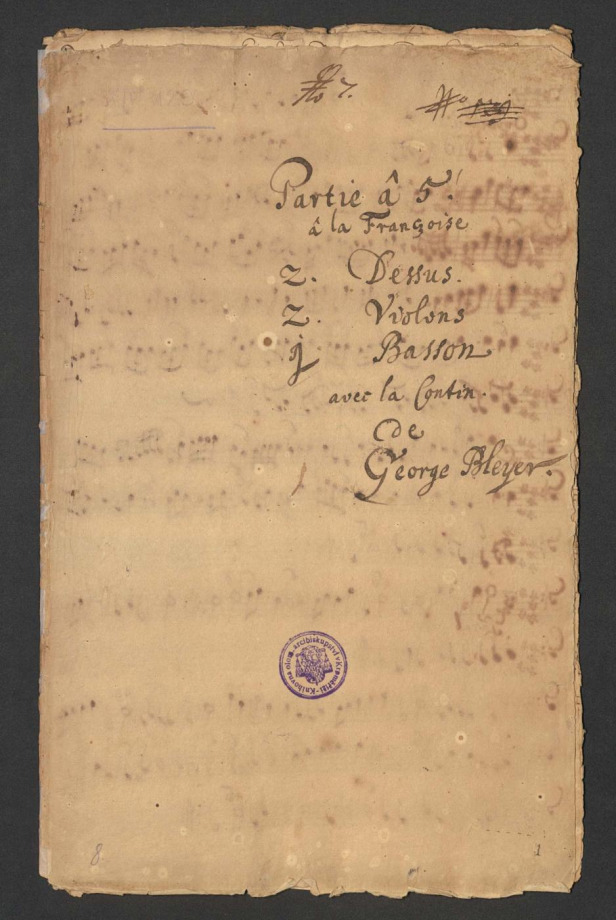 No 7.
No
Partie â 5.
â la Françoise
2. Dessus.
2. Violons
j Basson
avec la Contin.
de
George Bleyer.
Knihovna olom. arcibiskupství v Kroměříži
8
1